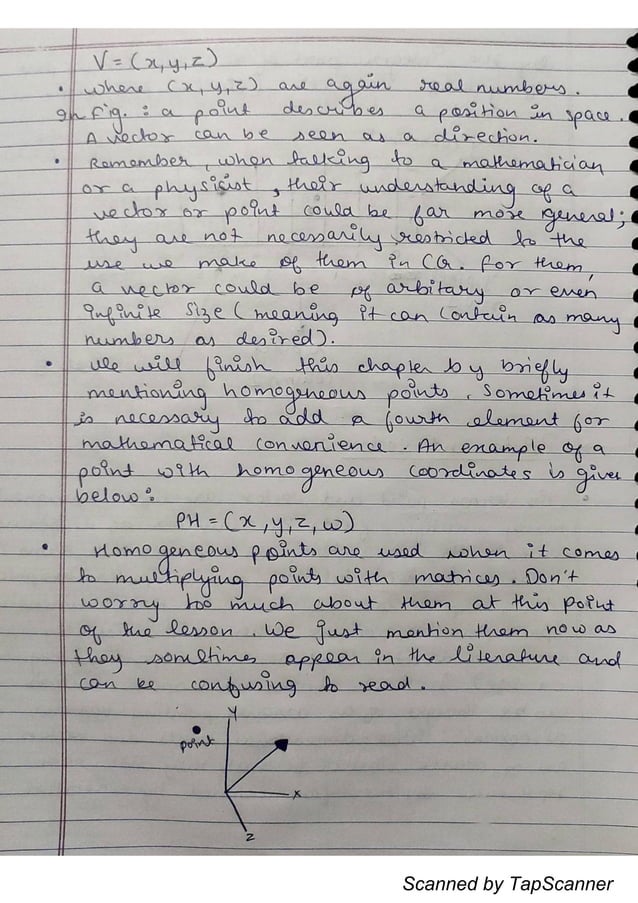 V = (x, y, z)
• where (x, y, z) are again real numbers.
In Fig. : a point describes a position in space.
A vector can be seen as a direction.
• Remember, when talking to a mathematician
or a physicist, their understanding of a
vector or point could be far more general;
they are not necessarily restricted to the
use we make of them in CG. For them,
a vector could be of arbitary or even
infinite size (meaning it can contain as many
numbers as desired).
• We will finish this chapter by briefly
mentioning homogeneous points. Sometimes it
is necessary to add a fourth element for
mathematical convenience. An example of a
point with homogeneous coordinates is given
below:
PH = (x, y, z, w)
• Homogeneous points are used when it comes
to multiplying points with matrices. Don't
worry too much about them at this point
of the lesson. We just mention them now as
they sometimes appear in the literature and
can be confusing to read.
Y
point
X
Z
Scanned by TapScanner